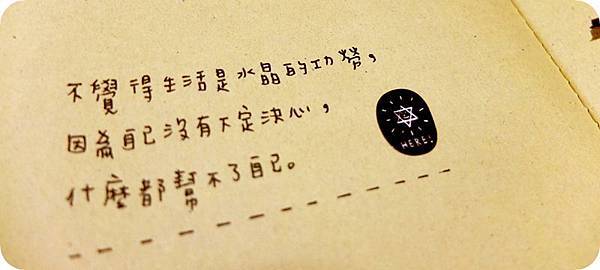 不覺得生活是水晶的功勞，
因為自己沒有下定決心，
什麼都幫不了自己。
HERE!